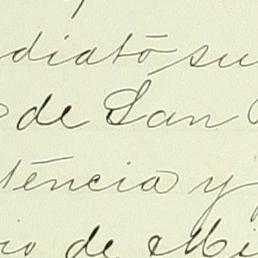 diató su
de San
téncia y
io de Mi